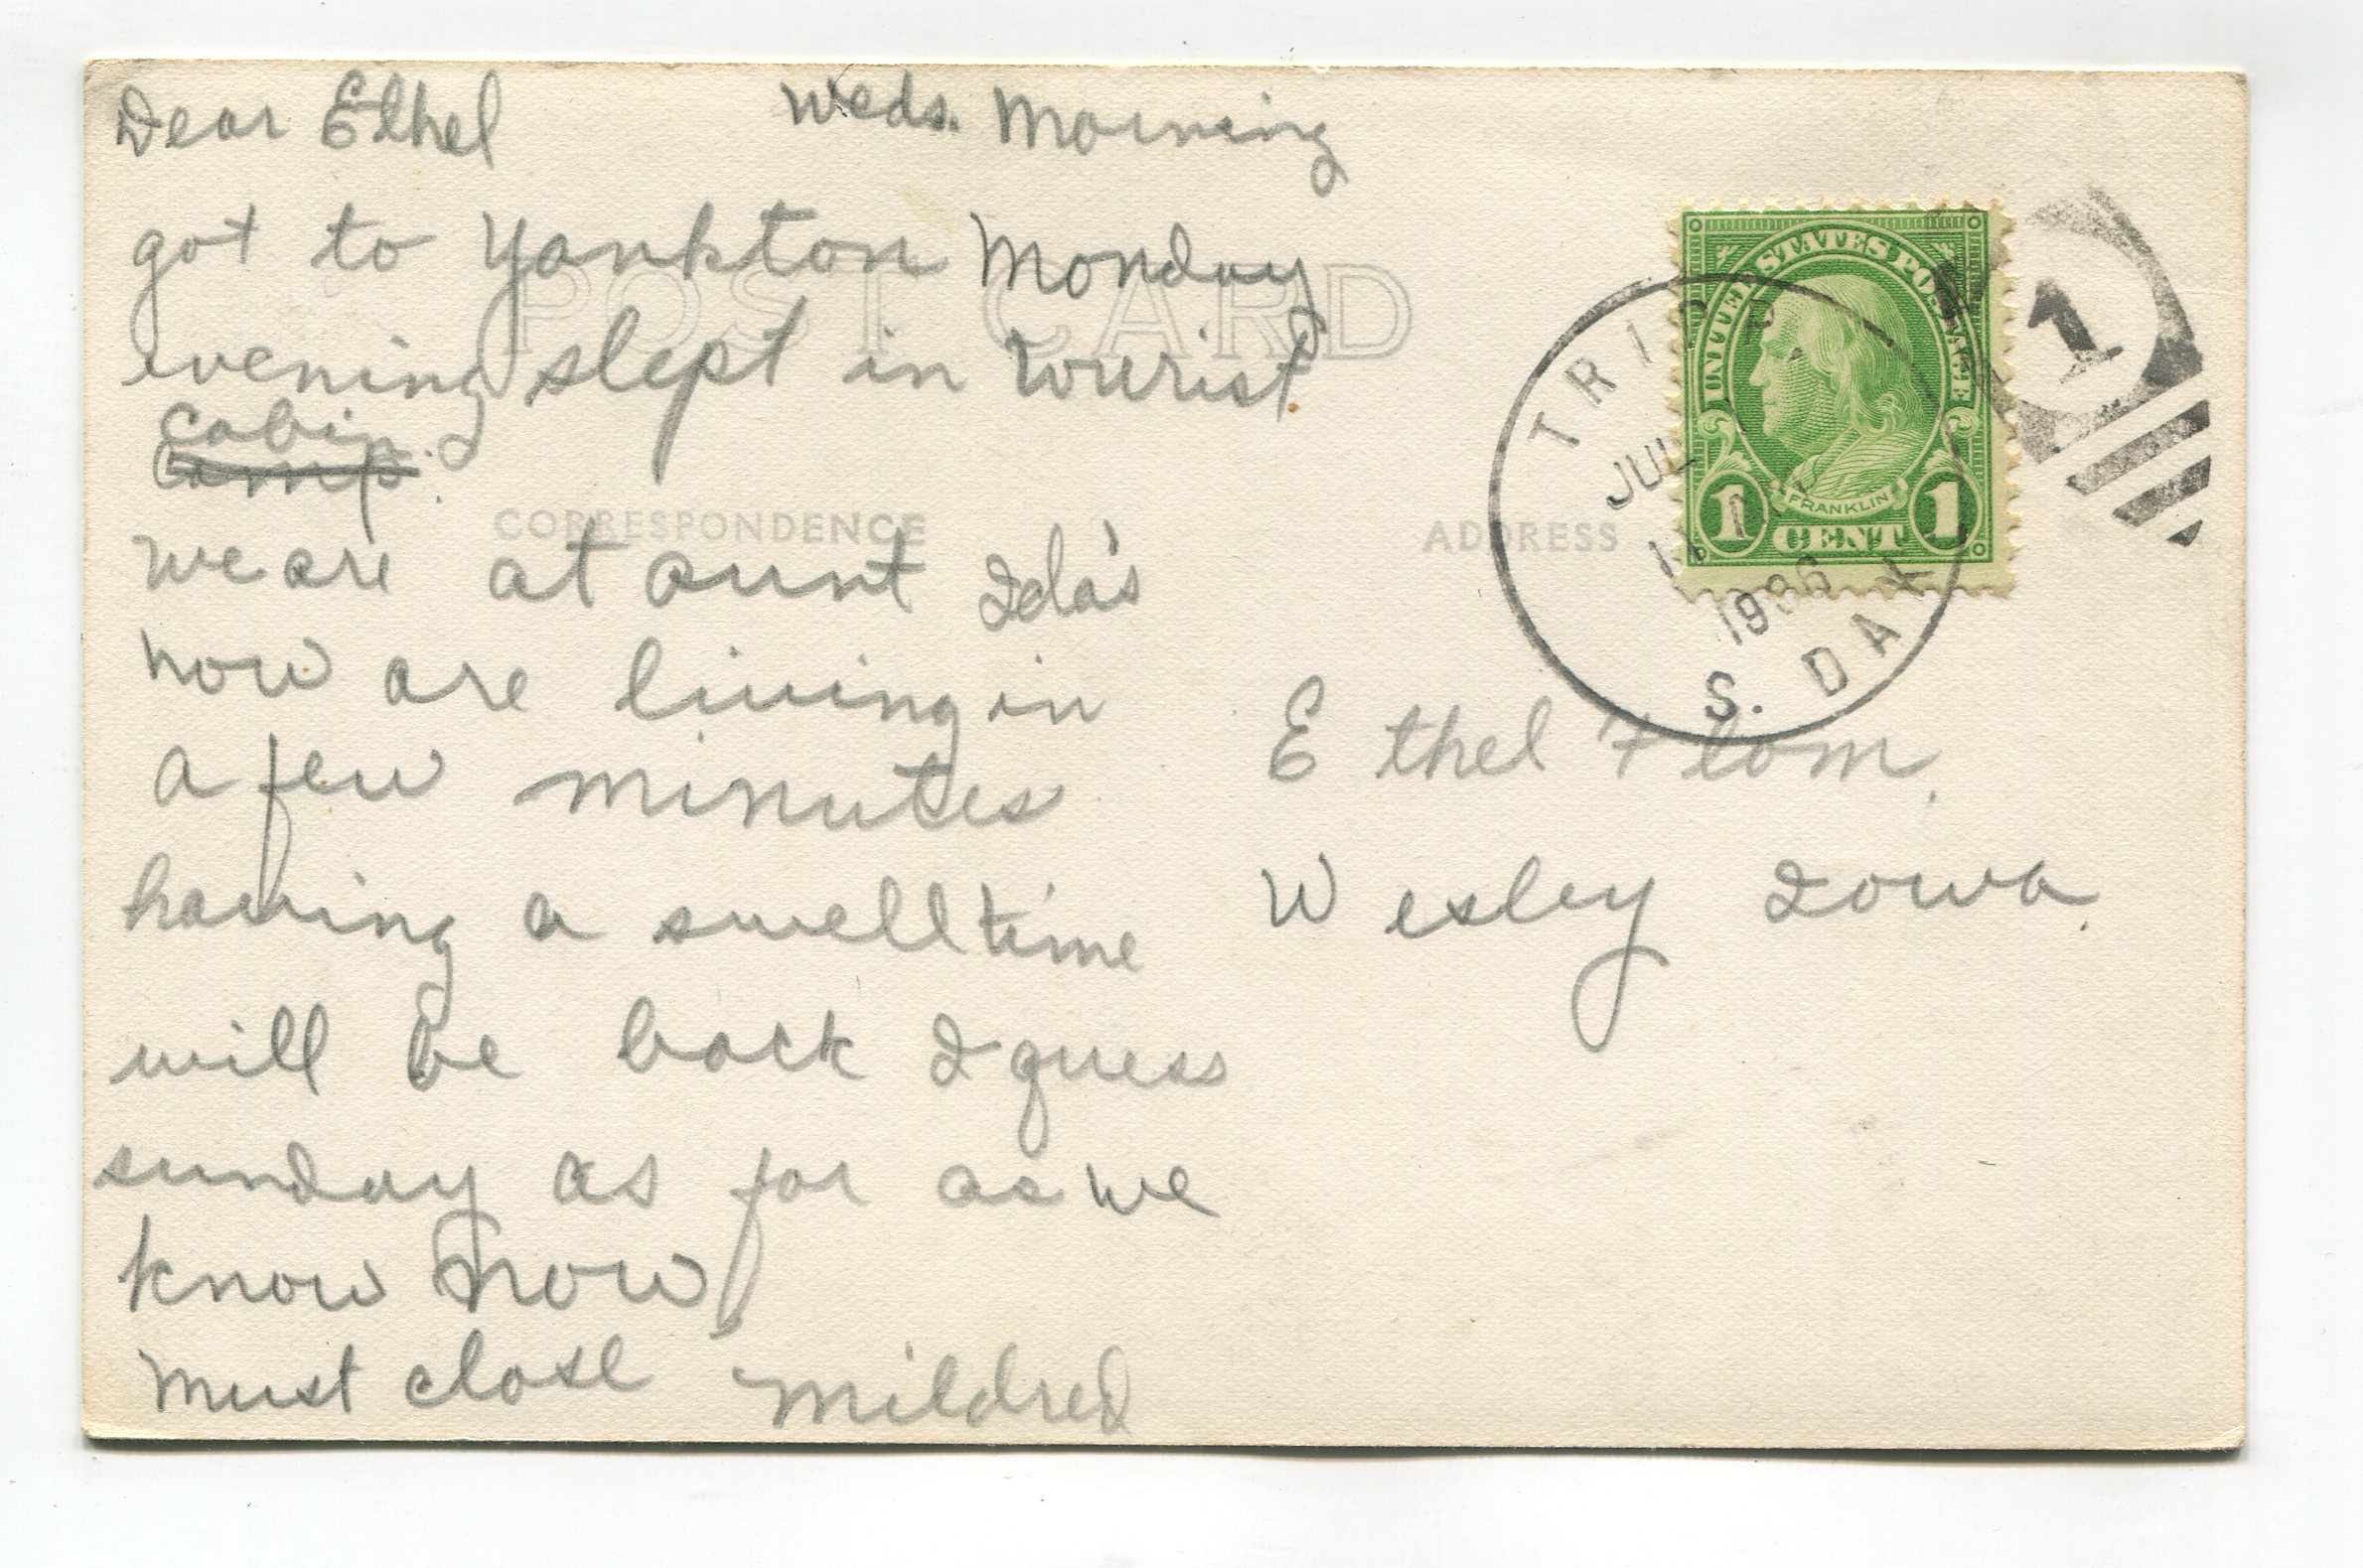 Dear Ethel Weds. Morning
got to Yankton Monday
evening slept in tourist
cabin.
camp.
we are at aunt Ida's
now are living in
a few minutes
having a swell time
will be back I guess
sunday as far as we
know now
must close Mildred
POST CARD
CORRESPONDENCE
ADDRESS
UNITED STATES POSTAGE
FRANKLIN
1 CENT 1
TRIPP
JUL
1936
S. DAK
1
Ethel Flom.
Wesley Iowa.